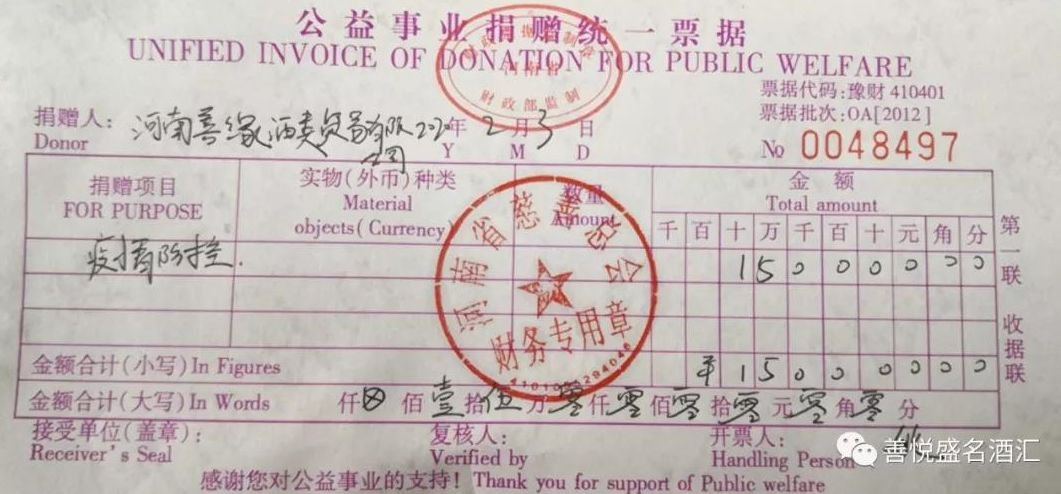 公益事业捐赠统一票据
UNIFIED INVOICE OF DONATION FOR PUBLIC WELFARE
财政部监制
票据代码:豫财 410401
票据批次:OA[2012]
№ 0048497
捐赠人: 河南善缘酒类贸易有限公司 2020年 2月 3日
Donor Y M D
捐赠项目 实物(外币)种类 数量 金额
FOR PURPOSE Material objects(Currency) Amount Total amount
千 百 十 万 千 百 十 元 角 分
疫情防控. 1 5 0 0 0 0 0 0
河南省慈善总会
财务专用章
金额合计(小写)In Figures ¥ 1 5 0 0 0 0 0 0
金额合计(大写)In Words 仟 佰 壹 拾 伍 万 零 仟 零 佰 零 拾 零 元 零 角 零 分
第一联 收据联
接受单位(盖章): 复核人: 开票人:
Receiver's Seal Verified by Handling Person
感谢您对公益事业的支持! Thank you for support of Public welfare
善悦盛名酒汇